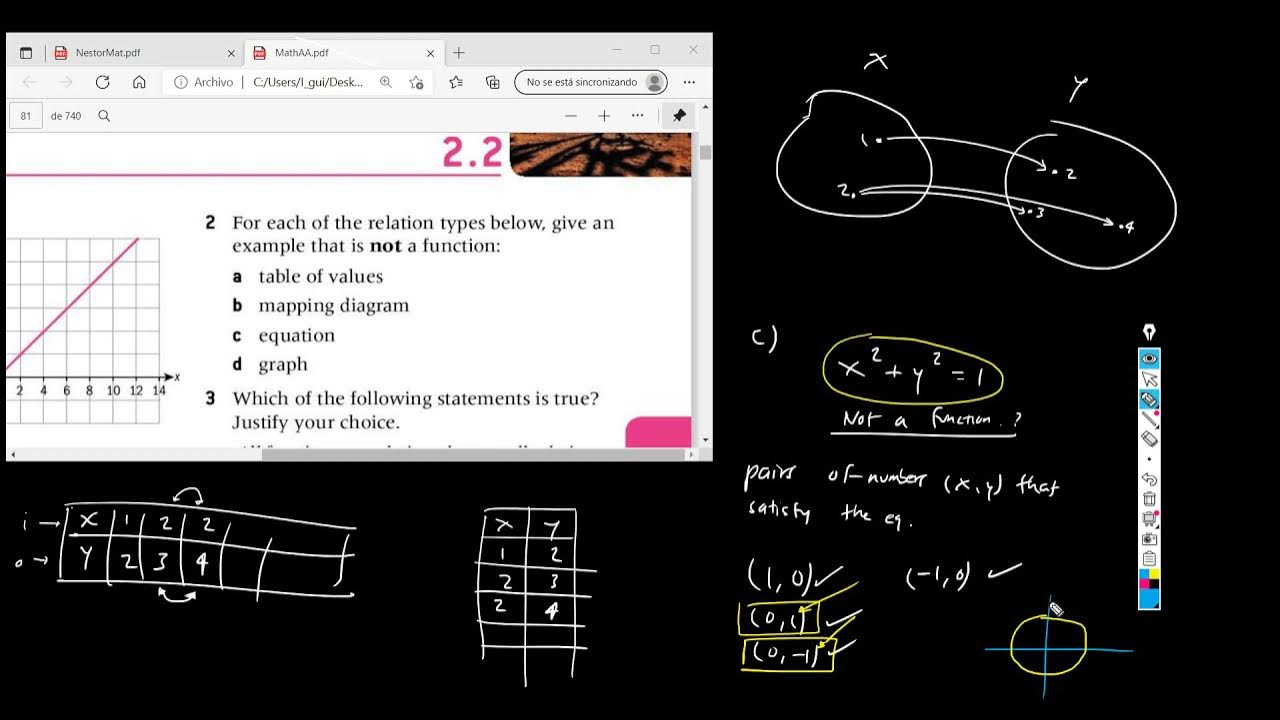 NestorMat.pdf
MathAA.pdf
Archivo
C:/Users/l_gui/Desk...
No se está sincronizando
81
de 740
2.2
2 For each of the relation types below, give an
example that is not a function:
a table of values
b mapping diagram
c equation
d graph
3 Which of the following statements is true?
Justify your choice.
x
2 4 6 8 10 12 14
i → X 1 2 2
o → Y 2 3 4
X Y
1 2
2 3
2 4
X
Y
1
2
2
3
4
c)
x² + y² = 1
Not a function.?
pairs of numbers (x,y) that
satisfy the eq.
(1,0) ✓ (-1,0) ✓
(0,1) ✓
(0,-1) ✓